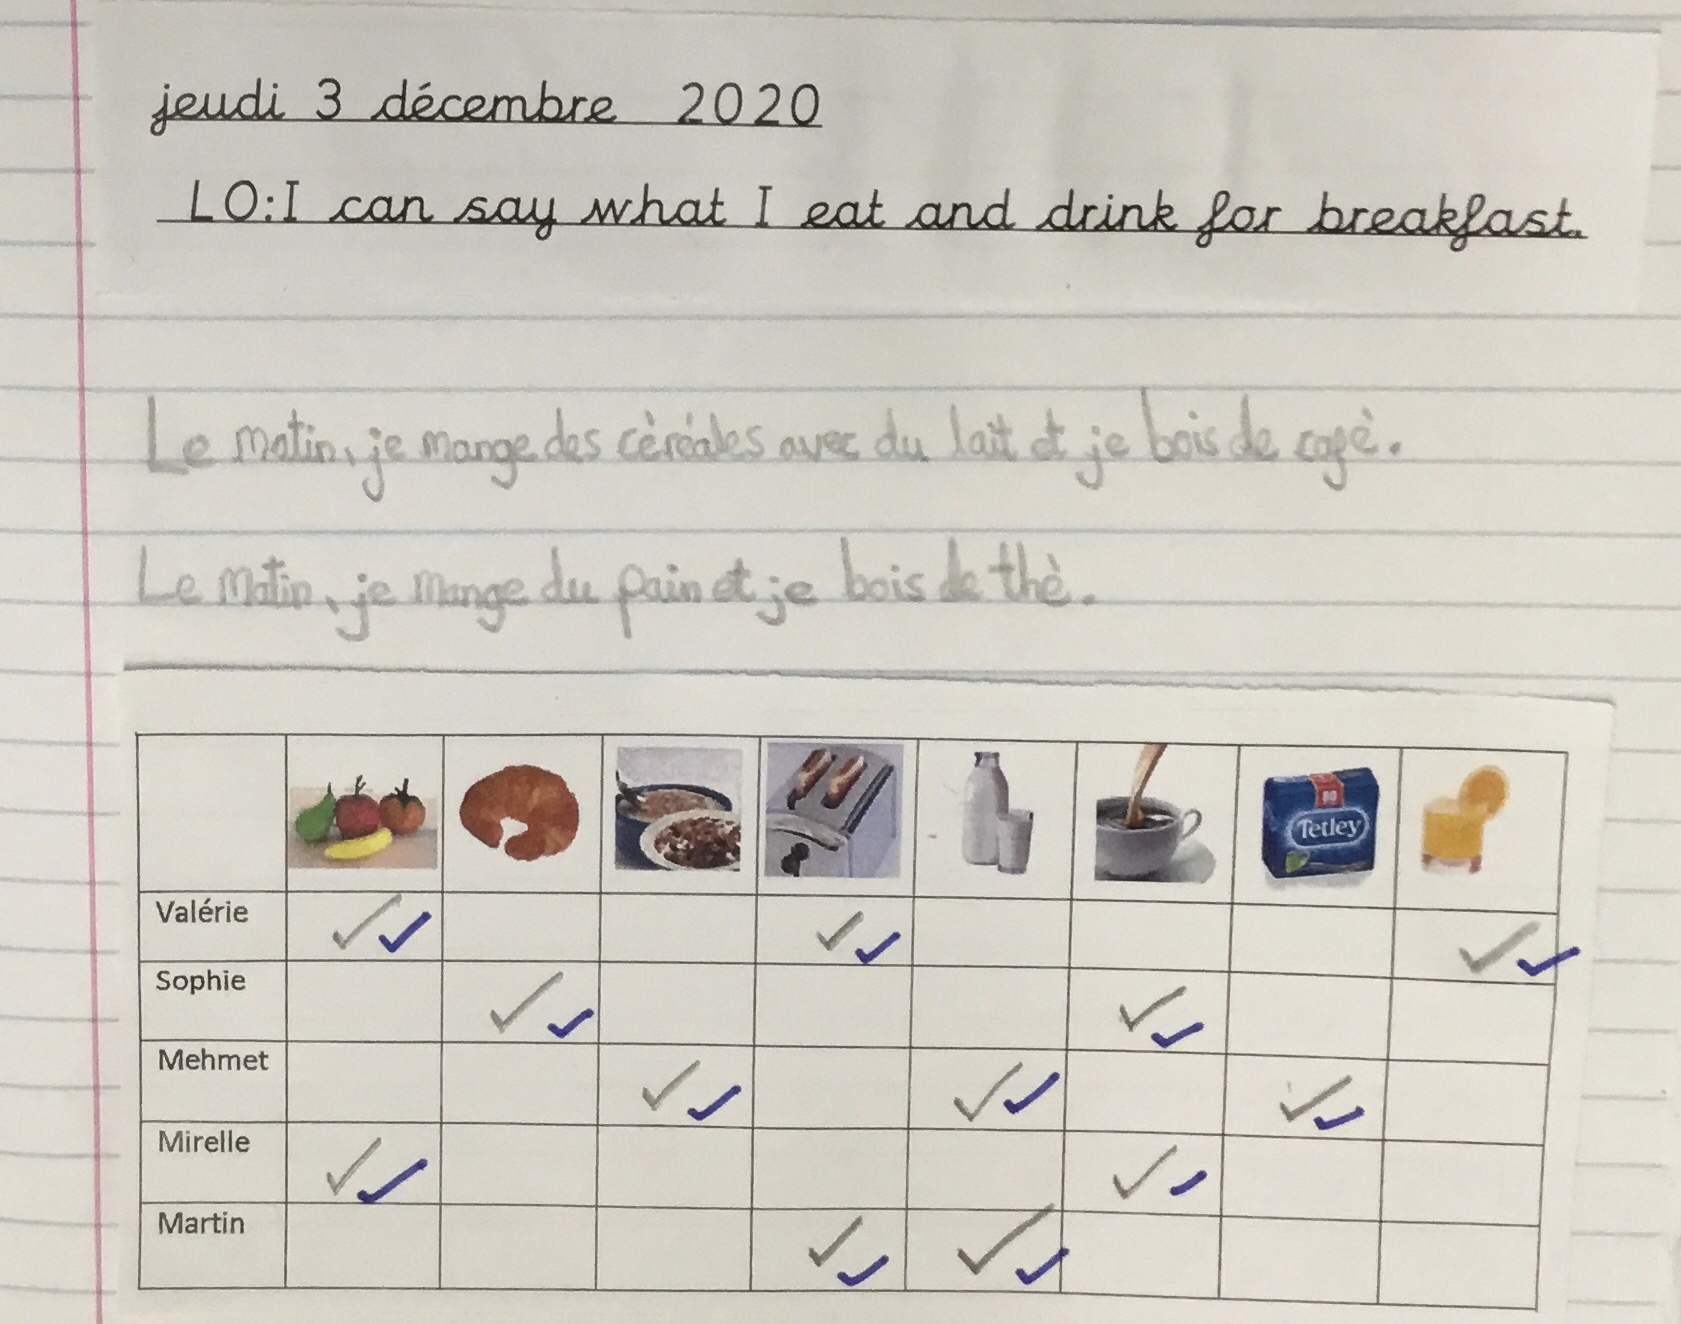 jeudi 3 décembre 2020
LO:I can say what I eat and drink for breakfast.
Le matin, je mange des cèréales avec du lait et je bois de cafè.
Le matin, je mange du pain et je bois de thè.
80
Tetley
Valérie
Sophie
Mehmet
Mirelle
Martin